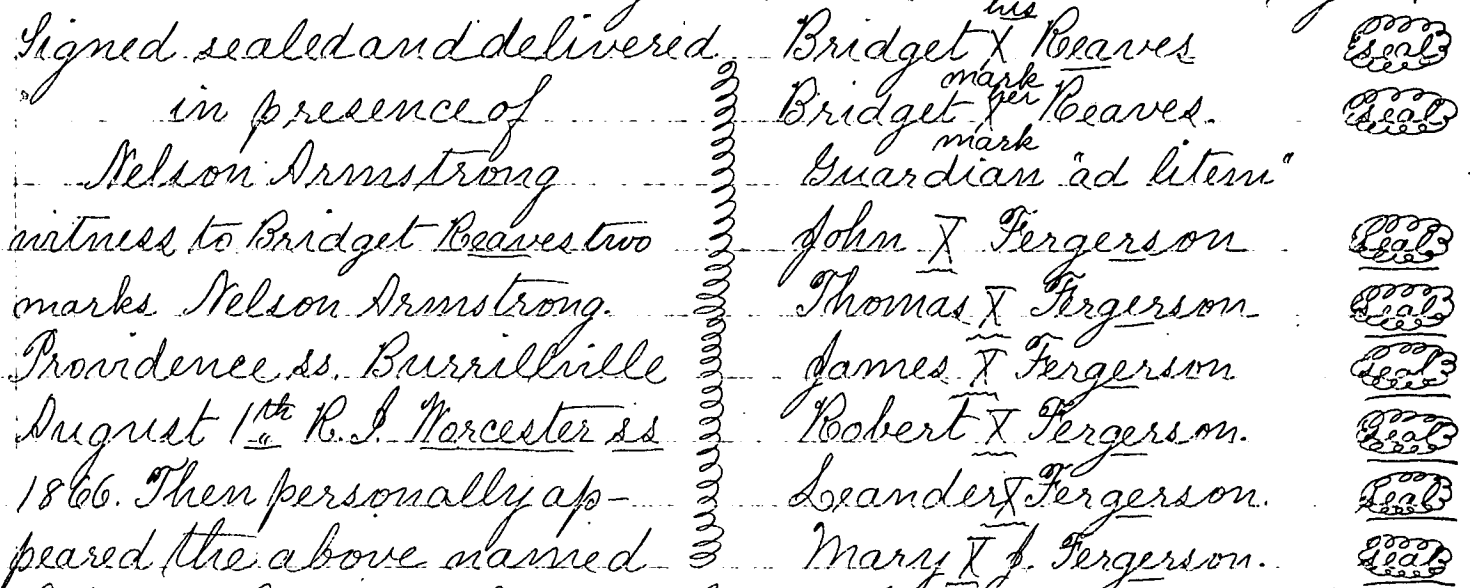 Signed sealed and delivered
in presence of
Nelson Armstrong
witness to Bridget Reaves two
marks Nelson Armstrong.
Providence ss. Burrillville
August 1th R.I. Worcester ss
1866. Then personally ap-
peared the above named
his
Bridget X Reaves seal
mark
her
Bridget X Reaves. seal
mark
Guardian "ad litem"
John X Fergerson seal
Thomas X Fergerson seal
James X Fergerson seal
Robert X Fergerson. seal
Leander X Fergerson. seal
Mary X J. Fergerson. seal